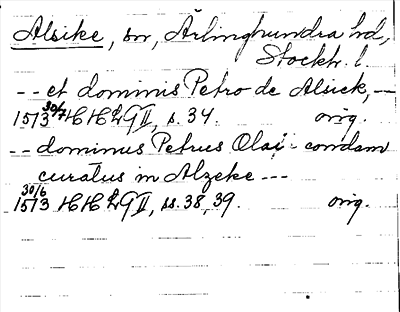 Alsike, sn, Ärlinghundra hd,
Stockh. l.
-- et dominis Petro de Alsick, --
1513 30/7 HH 2 G II, s. 34. orig.
-- dominus Petrus Olai condam
curatus in Alzeke ---
30/6
1513 HH 2 G II, ss. 38, 39. orig.